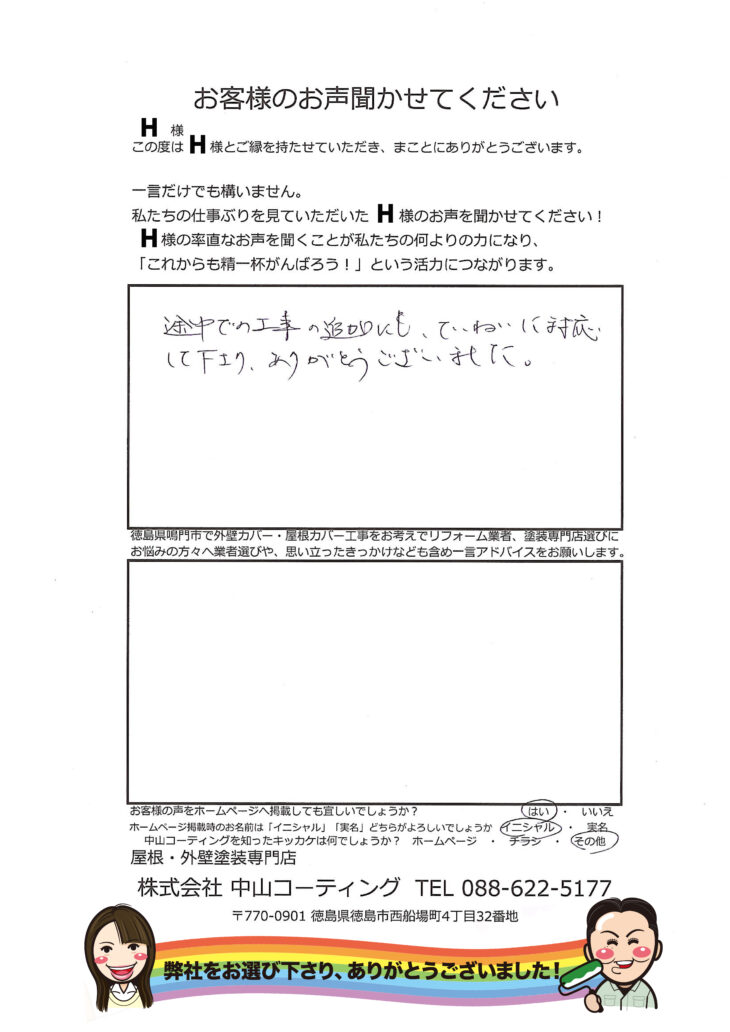 お客様のお声聞かせてください
H 様
この度は H 様とご縁を持たせていただき、まことにありがとうございます。
一言だけでも構いません。
私たちの仕事ぶりを見ていただいた H 様のお声を聞かせてください！
H 様の率直なお声を聞くことが私たちの何よりの力になり、
「これからも精一杯がんばろう！」という活力につながります。
途中での工事の追加にも、ていねいに対応
して下さり、ありがとうございました。
徳島県鳴門市で外壁カバー・屋根カバー工事をお考えでリフォーム業者、塗装専門店選びに
お悩みの方々へ業者選びや、思い立ったきっかけなども含め一言アドバイスをお願いします。
お客様の声をホームページへ掲載しても宜しいでしょうか？ はい ・ いいえ
ホームページ掲載時のお名前は「イニシャル」「実名」どちらがよろしいでしょうか イニシャル ・ 実名
中山コーティングを知ったキッカケは何でしょうか？ ホームページ ・ チラシ ・ その他
屋根・外壁塗装専門店
株式会社 中山コーティング TEL 088-622-5177
〒770-0901 徳島県徳島市西船場町4丁目32番地
弊社をお選び下さり、ありがとうございました！